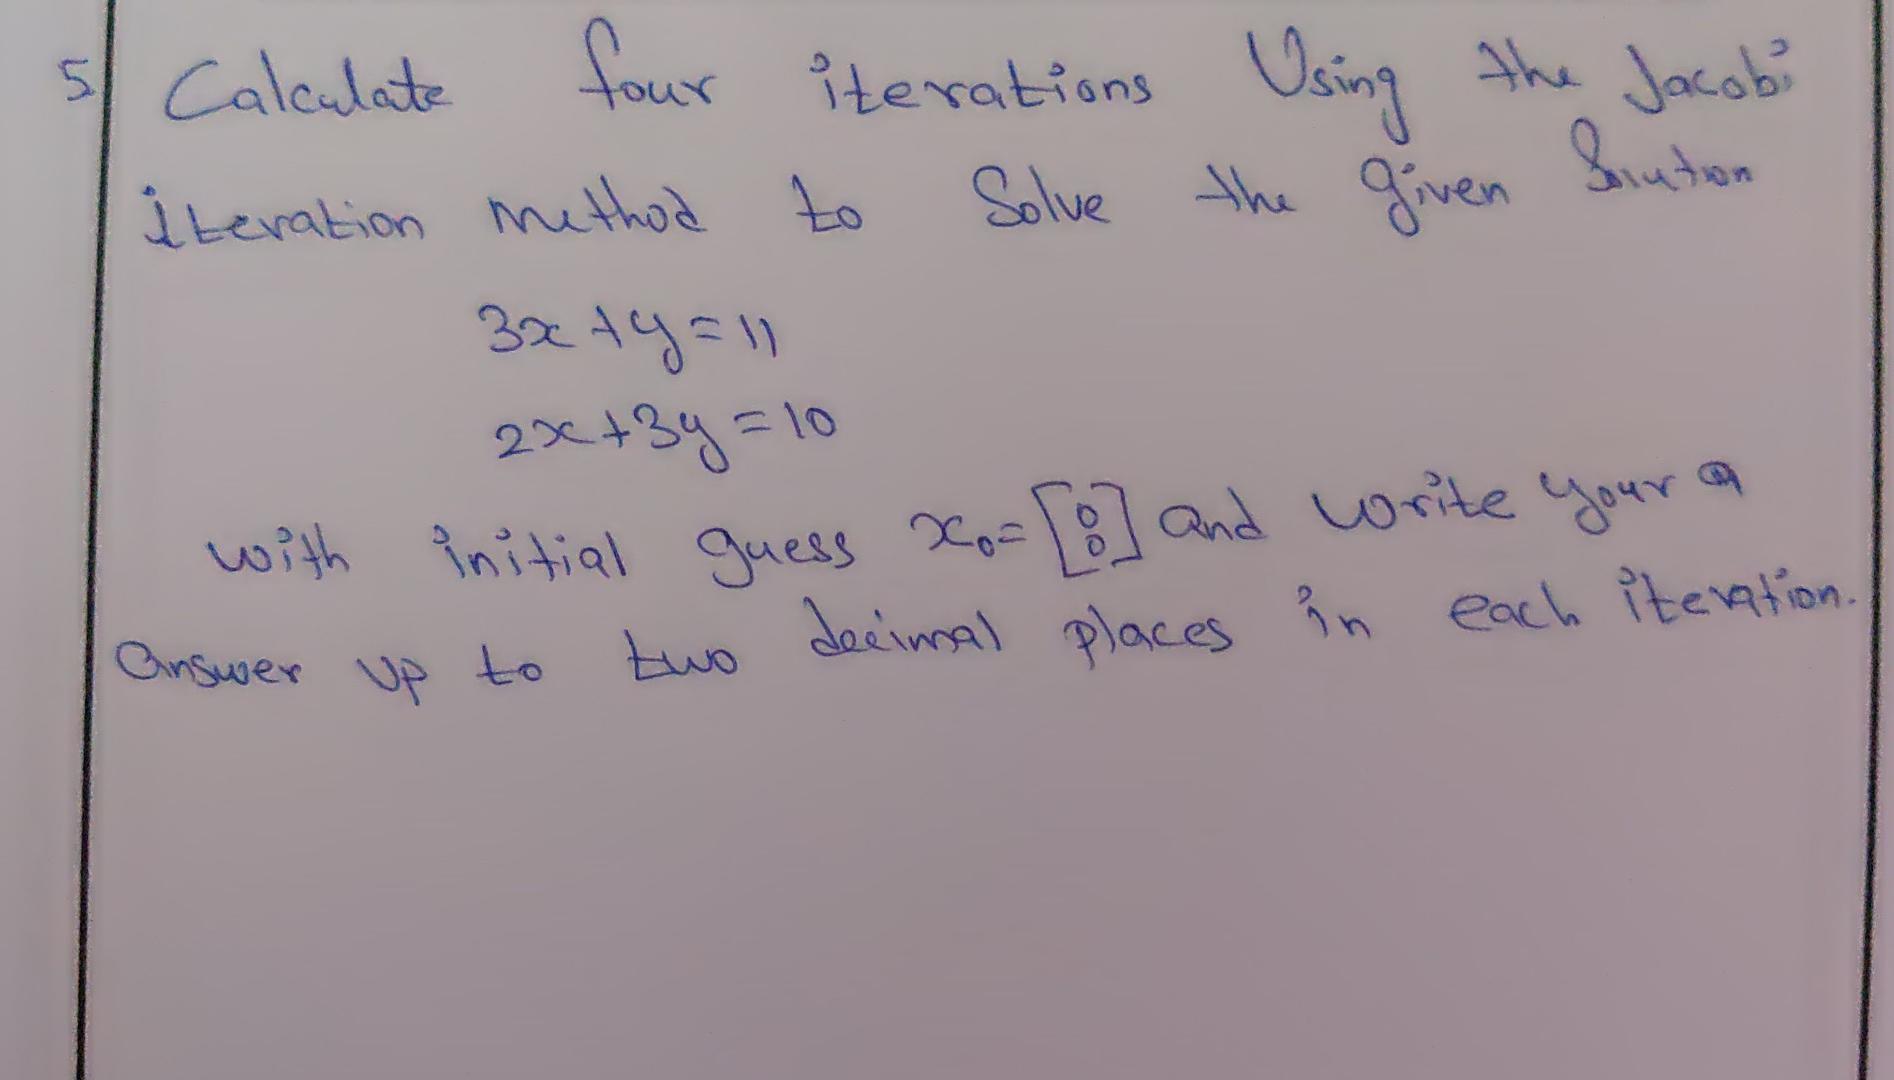 5 Calculate four iterations Using the Jacobi
iteration method to Solve the given
3x + y = 11
2x + 3y = 10
with initial guess x₀ = [0 0] and write your
answer up to two decimal places in each iteration.